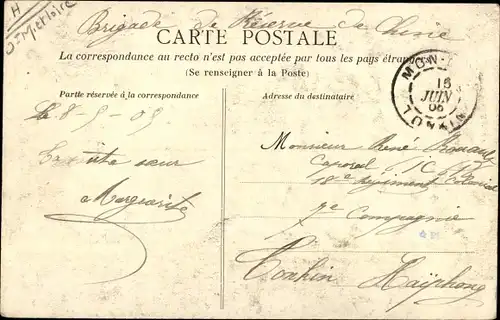 H
Brigade de Réserve de Chine
CARTE POSTALE
La correspondance au recto n'est pas acceptée par tous les pays étran
(Se renseigner à la Poste)
Partie réservée à la correspondance
Adresse du destinataire
MON
15
JUIN
Le 8-5-05
Monsieur René
Caporal
18e Régiment Colonial
Ta petite sœur
Marguerite
7e Compagnie
Tonkin Haïphong